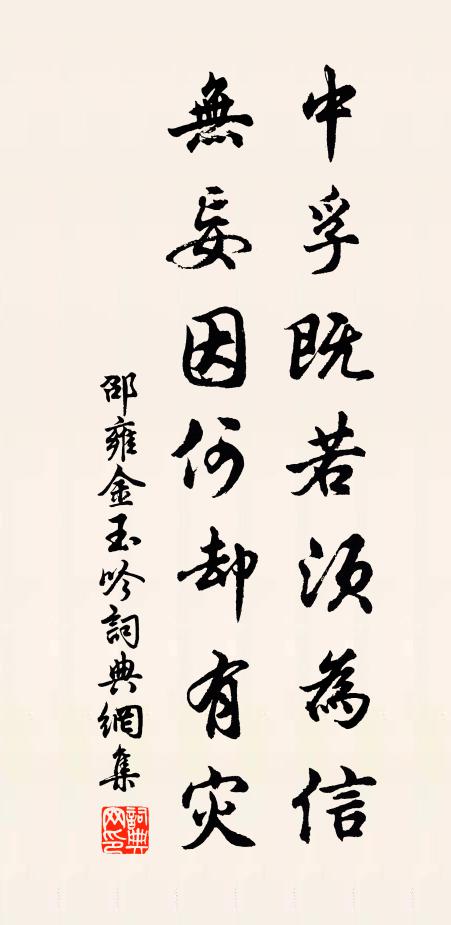 中孚既若須為信
無妄因何却有灾
邵雍金玉吟詞典網集
詞典網印